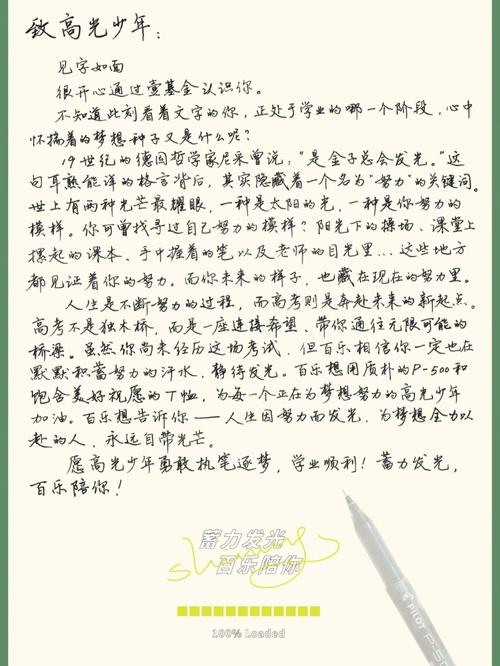 致高光少年：
见字如面
很开心通过壹基金认识你。
不知道此刻看着文字的你，正处于学业的哪一个阶段，心中
怀揣着的梦想种子又是什么呢？
19世纪的德国哲学家尼采曾说：“是金子总会发光。”这
句耳熟能详的格言背后，其实隐藏着一个名为“努力”的关键词。
世上有两种光芒最耀眼，一种是太阳的光，一种是你努力的
模样。你可曾找寻过自己努力的模样？阳光下的操场、课堂上
摞起的课本、手中握着的笔以及老师的目光里...这些地方
都见证着你的努力。而你未来的样子，也藏在现在的努力里。
人生是不断努力的过程，而高考则是奔赴未来的新起点。
高考不是独木桥，而是一座连接希望、带你通往无限可能的
桥梁。虽然你尚未经历这场考试，但百乐相信你一定也在
默默积蓄努力的汗水，静待发光。百乐想用质朴的P-500和
饱含美好祝愿的T恤，为每一个正在为梦想努力的高光少年
加油。百乐想告诉你——人生因努力而发光，为梦想全力以
赴的人，永远自带光芒。
愿高光少年勇敢执笔逐梦，学业顺利！蓄力发光，
百乐陪你！
蓄力发光
百乐陪你
100% Loaded
PILOT P-50